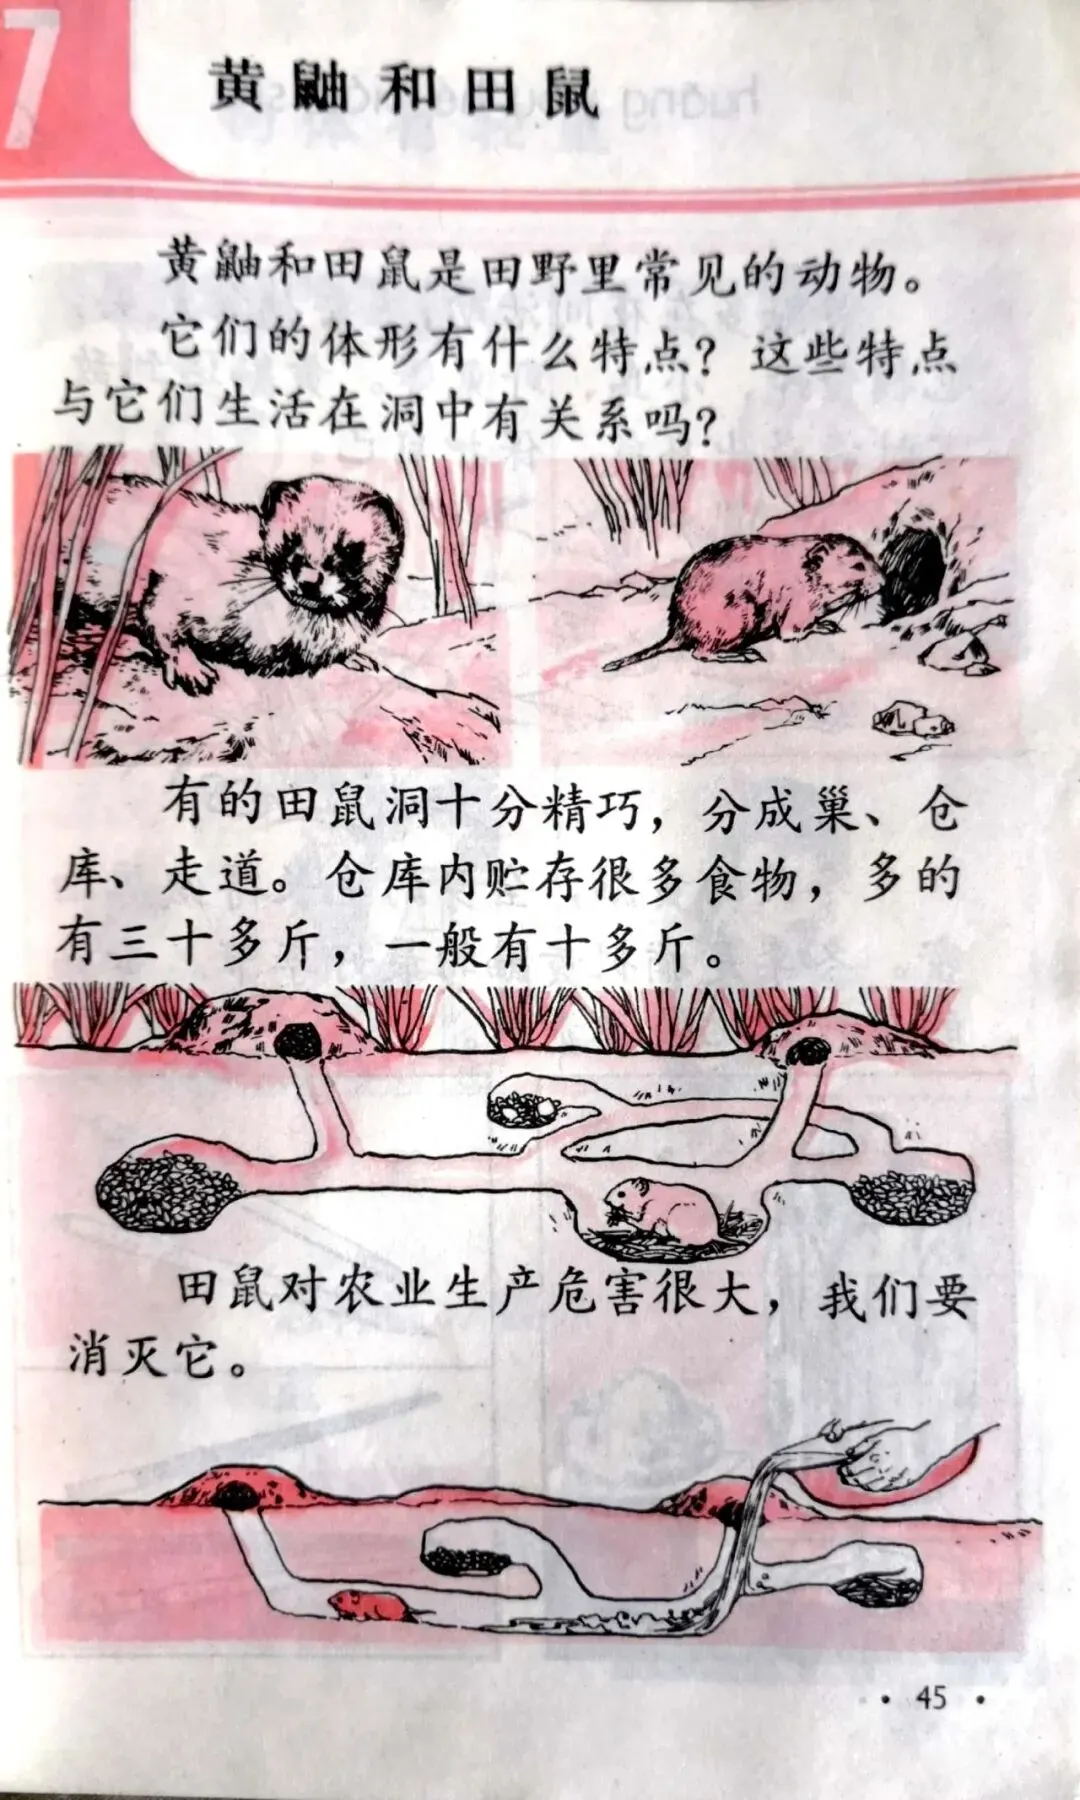 7
黄鼬和田鼠
黄鼬和田鼠是田野里常见的动物。
它们的体形有什么特点？这些特点
与它们生活在洞中有关系吗？
有的田鼠洞十分精巧，分成巢、仓
库、走道。仓库内贮存很多食物，多的
有三十多斤，一般有十多斤。
田鼠对农业生产危害很大，我们要
消灭它。
· 45 ·